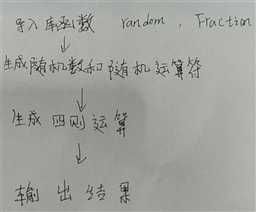 导入库函数 random , Fraction
生成随机数和随机运算符
生成四则运算
输出结果